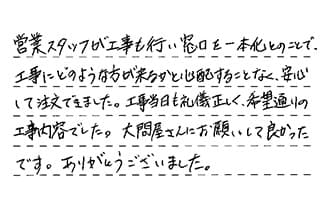 営業スタッフが工事も行い窓口を一本化とのことで、
工事にどのような方が来るかと心配することなく、安心
して注文できました。工事当日も礼儀正しく、希望通りの
工事内容でした。大問屋さんにお願いして良かった
です。ありがとうございました。